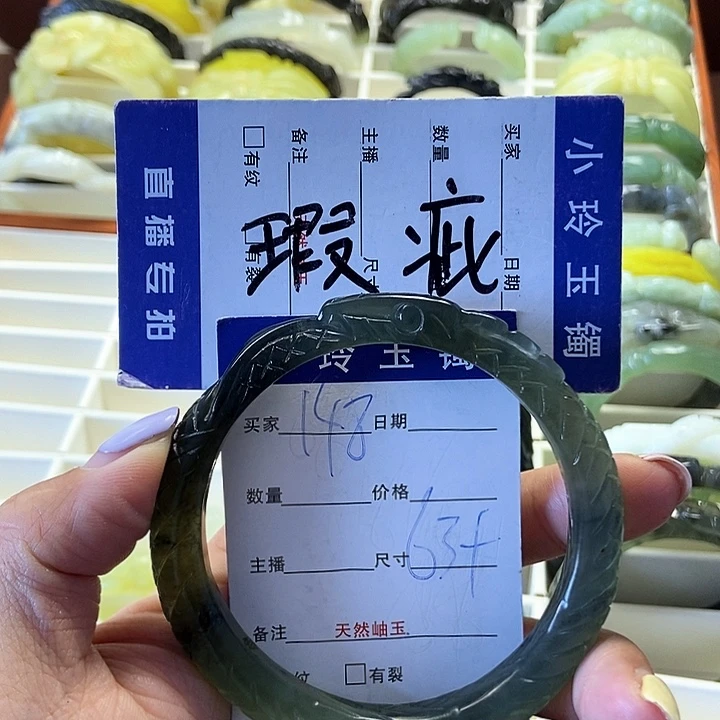 小玲玉镯
买家 日期
数量
主播 尺寸
备注
□有纹
□有裂
直播专拍
瑕疵
玲玉镯
买家 148 日期
数量 价格
主播 尺寸 63+
备注 天然岫玉
纹 □有裂